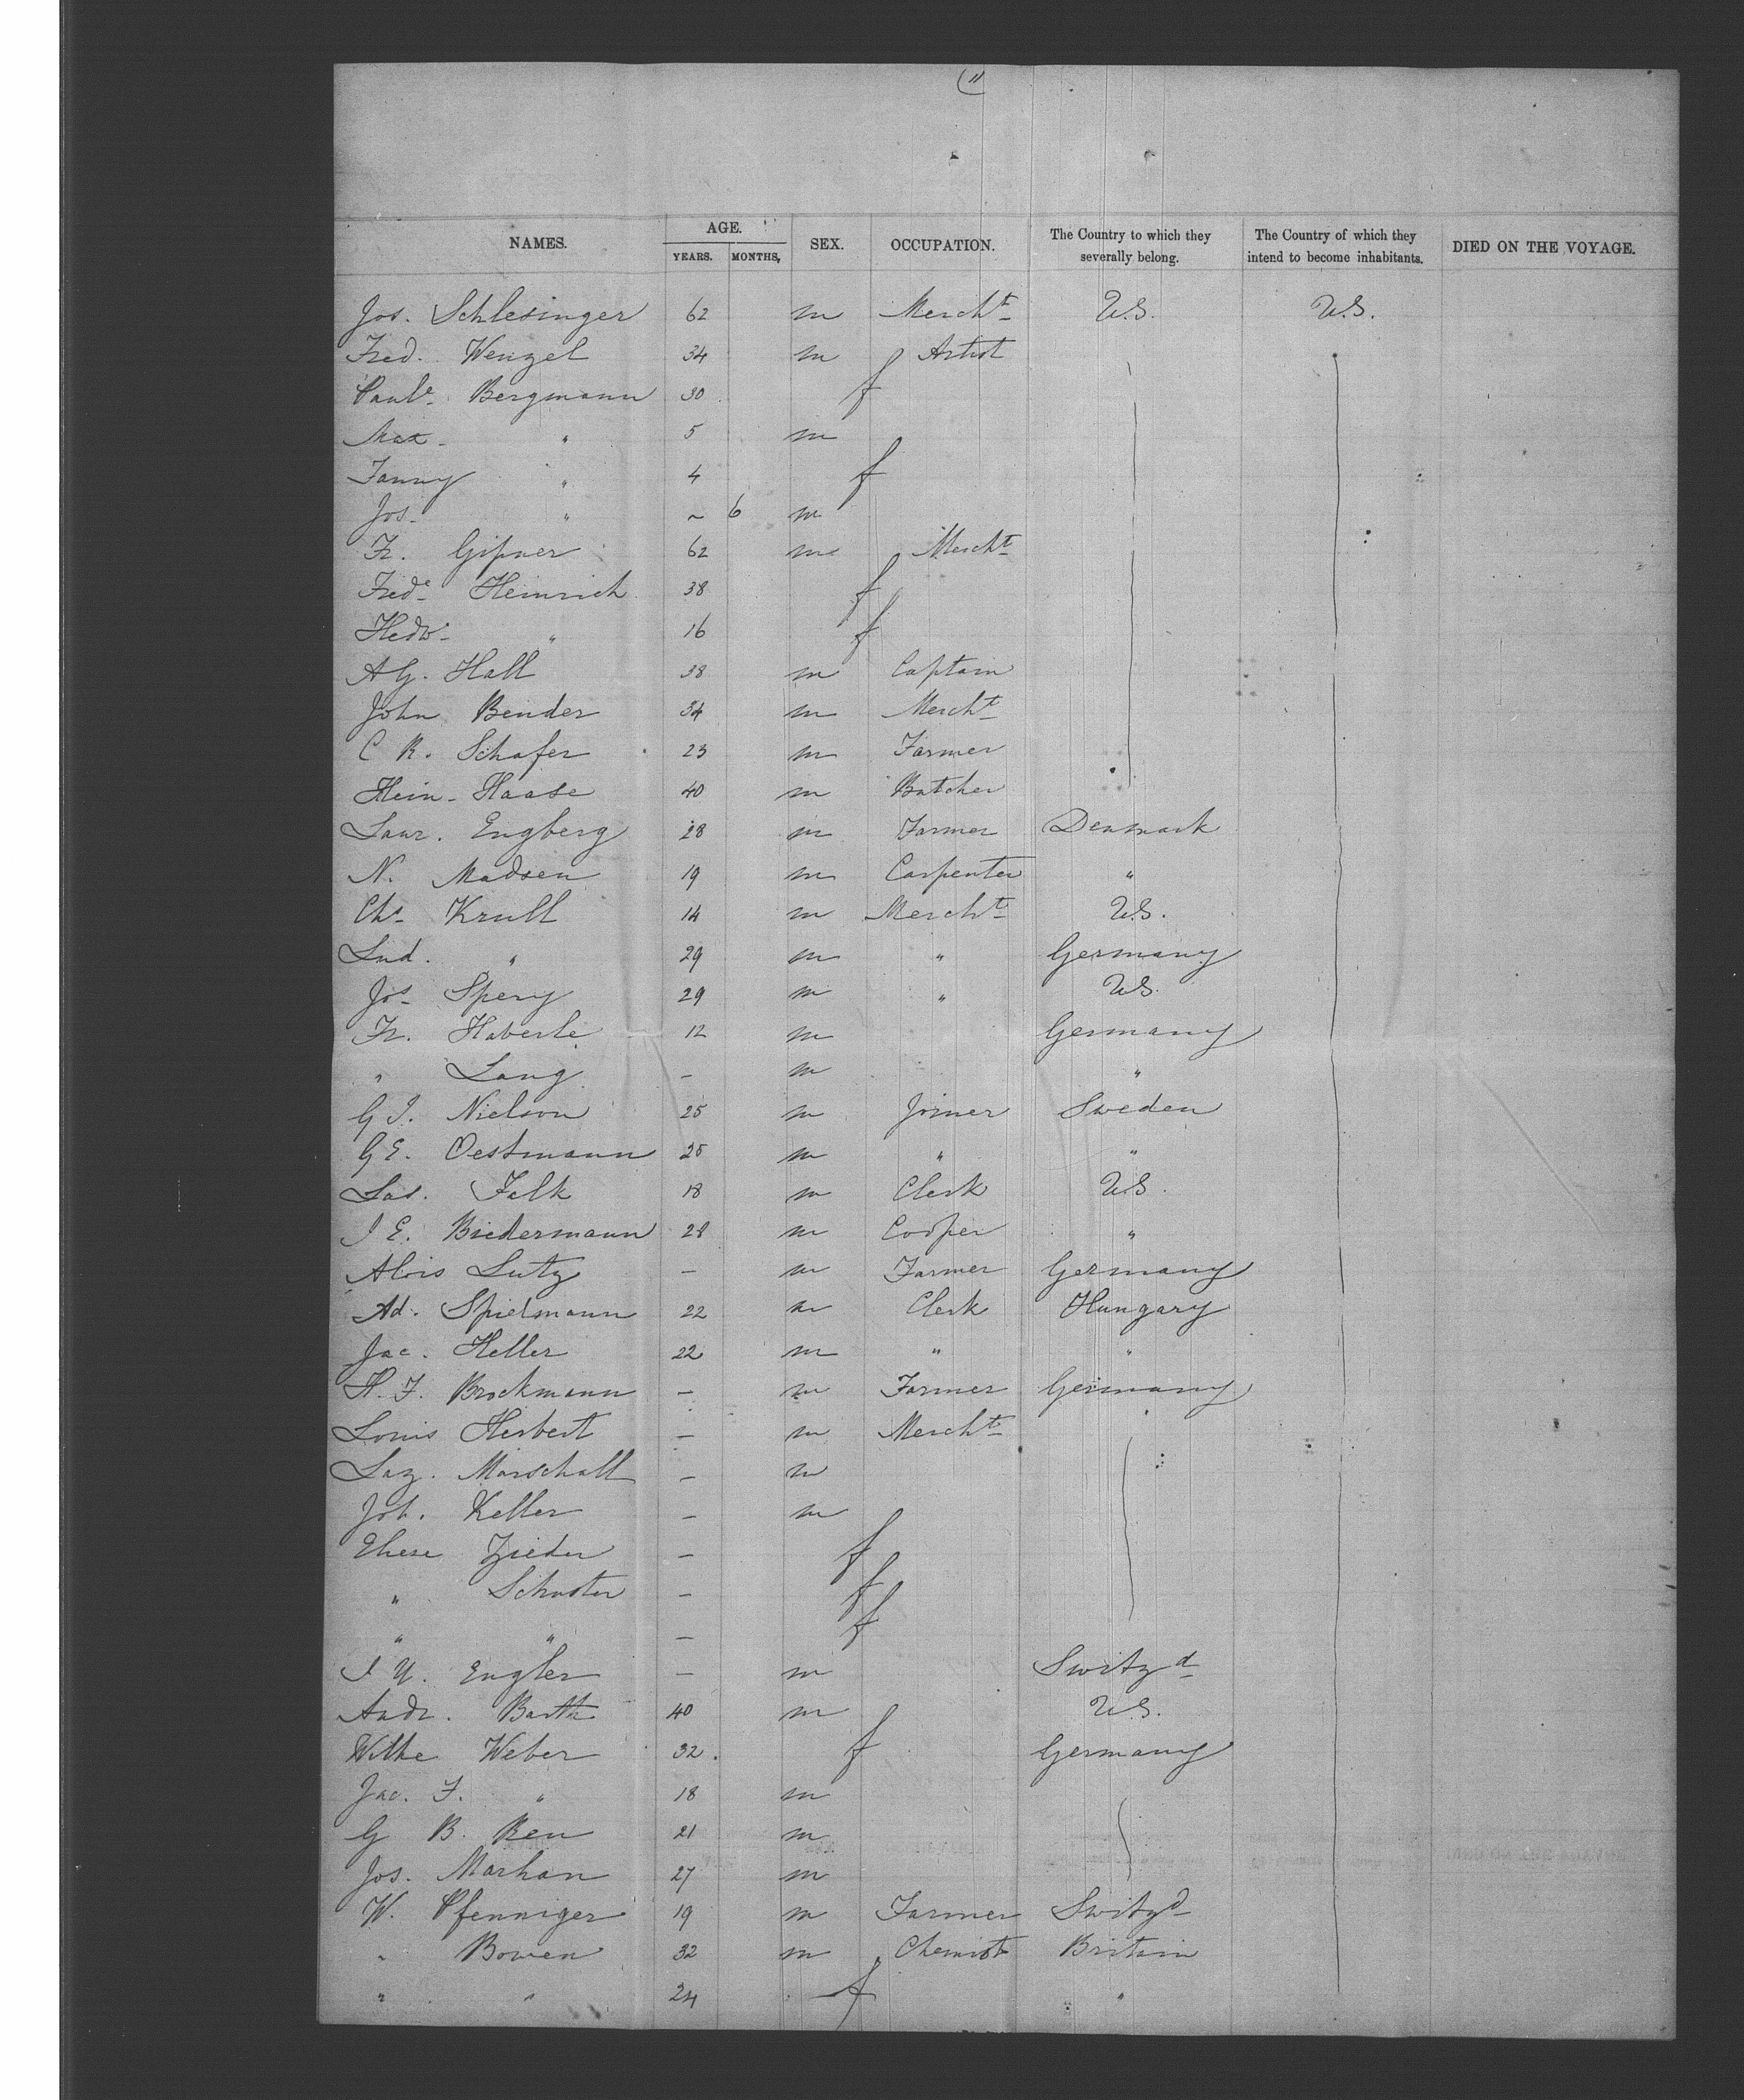 (11
NAMES. AGE. YEARS. MONTHS, SEX. OCCUPATION. The Country to which they severally belong. The Country of which they intend to become inhabitants. DIED ON THE VOYAGE.
Jos. Schlesinger 62 m Mercht U.S. U.S.
Fred. Wenzel 34 m Artist
Paule Bergmann 30 f
Max " 5 m
Fanny " 4 f
Jos. " ~ 6 m
Fr. Gipner 62 m Mercht
Frede Heinrich 38 f
Hedw. " 16 f
A G. Hall 38 m Captain
John Bender 34 m Mercht
C R. Schafer 23 m Farmer
Hein. Haase 40 m Butcher
Laur. Engberg 28 m Farmer Denmark
N. Madsen 19 m Carpenter "
Chs Krull 14 m Mercht U.S.
Lud. " 29 m " Germany
Jos Spery 29 m " U.S.
Fr. Haberle 12 m Germany
" Lang — m "
G J. Nielson 25 m Joiner Sweden
G E. Oestmann 25 m " "
Falk 18 m Clerk U.S.
J E. Biedermann 28 m Cooper "
Alois Lutz — m Farmer Germany
Ad. Spielmann 22 m Clerk Hungary
Jac. Heller 22 m " "
H. F. Brockmann — m Farmer Germany
Louis Herbert — m Mercht
Laz. Marschall — m
Joh. Keller — m
— f
" Schuster — f
" " — f
Engler — m Switzd
Andr. Barth 40 m U.S.
Wilhe Weber 32 f Germany
Jac. F. " 18 m
G B. Ren 21 m
Jos. Marhan 27 m
W. Pfenniger 19 m Farmer Switzd
" Bowen 32 m Chemist Britain
" " 24 f "